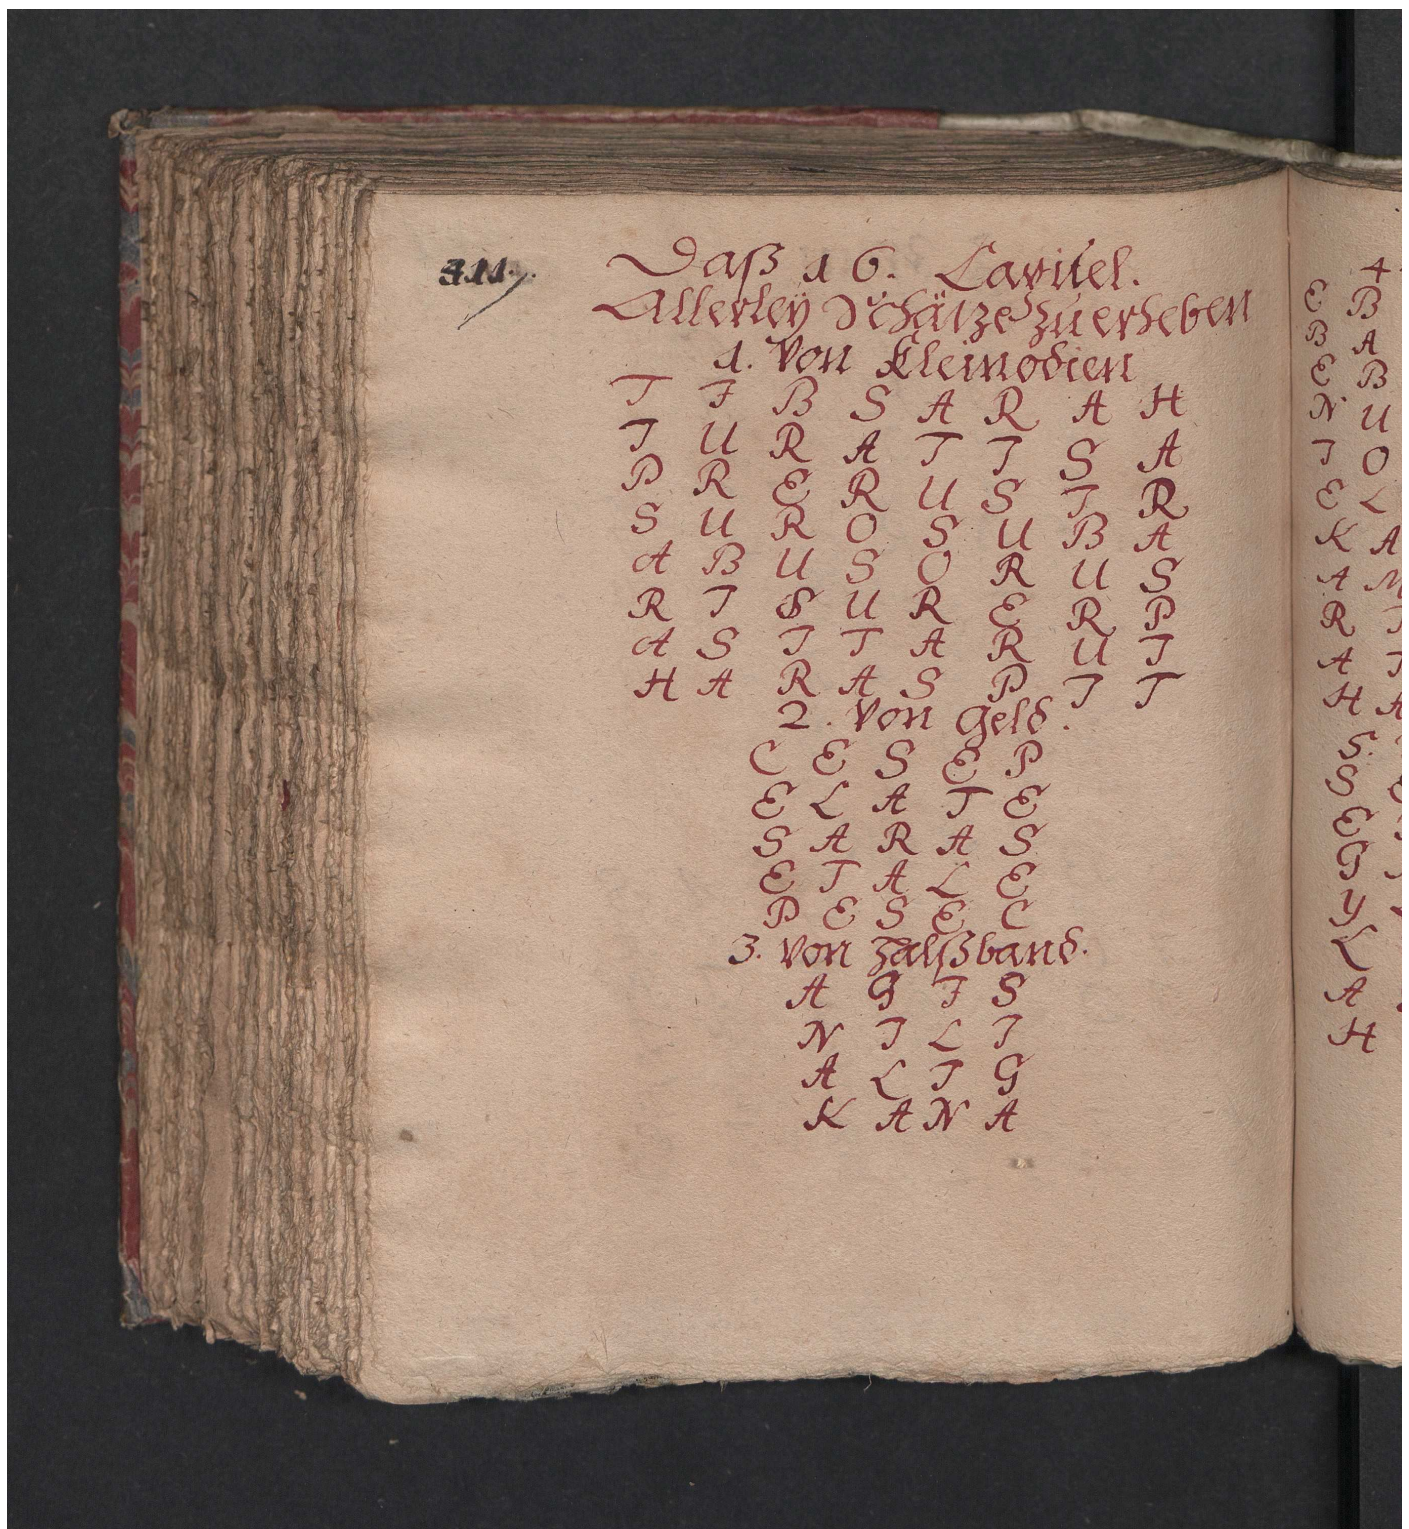 311.
Daß 16. Capitel.
Allerley Schätze zu erheben
1. Von Kleinodien
T I B S A R A H
I U R A T I S A
P R E R U S I R
S U R O S U B A
A B U S O R U S
R I S U R E R P
A S I T A R U I
H A R A S P I T
2. Von Geld.
C E S E P
E L A T E
S A R A S
E T A L E
P E S E C
3. Von Halßband.
A G I S
N I L I
A L I G
K A N A
4
E B
B A
E B
N U
I O
E L
K A
A M
R
A
H A
5.
S
E
G
Y
L
A
H